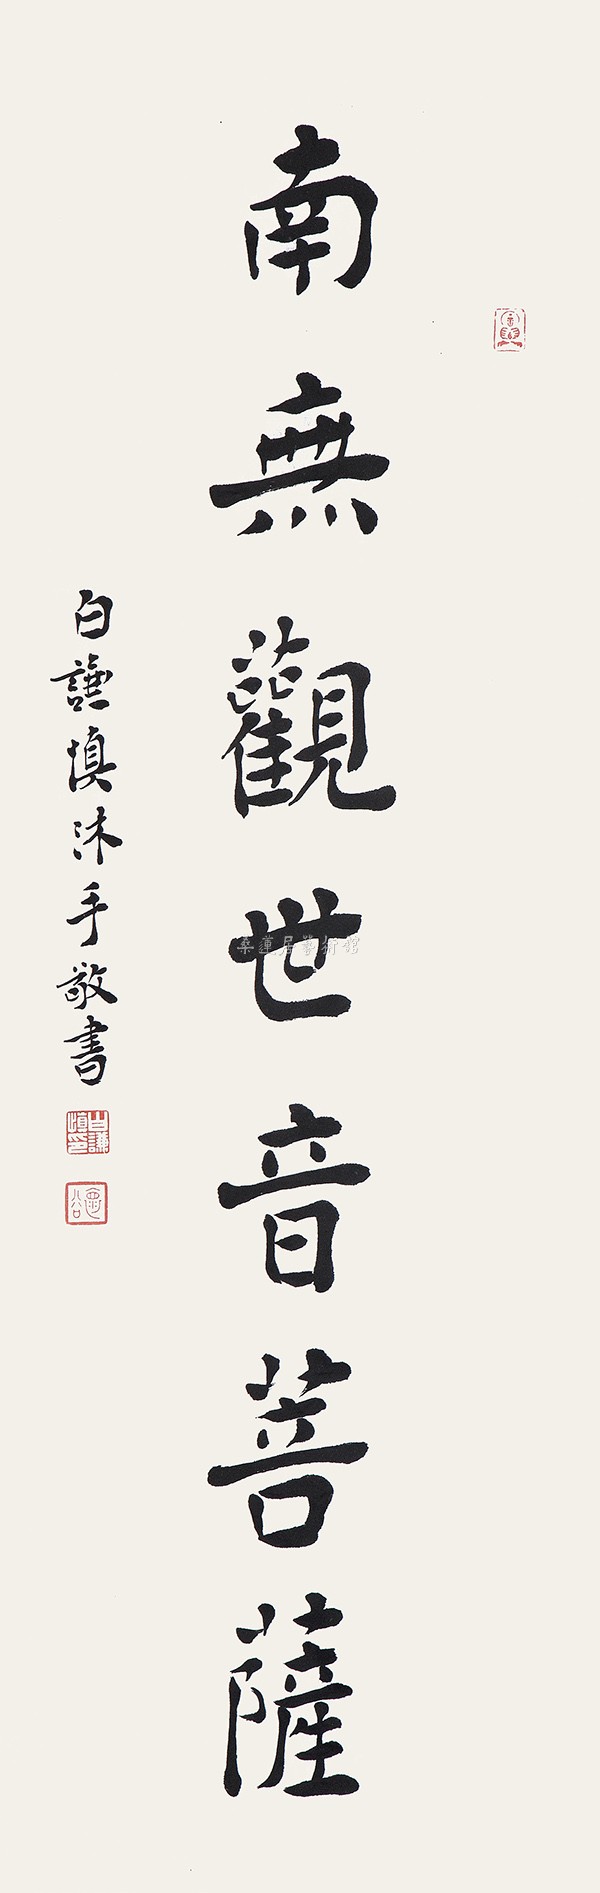 南無觀世音菩薩
白謙慎沐手敬書
白謙慎印
桑蓮居藝術館